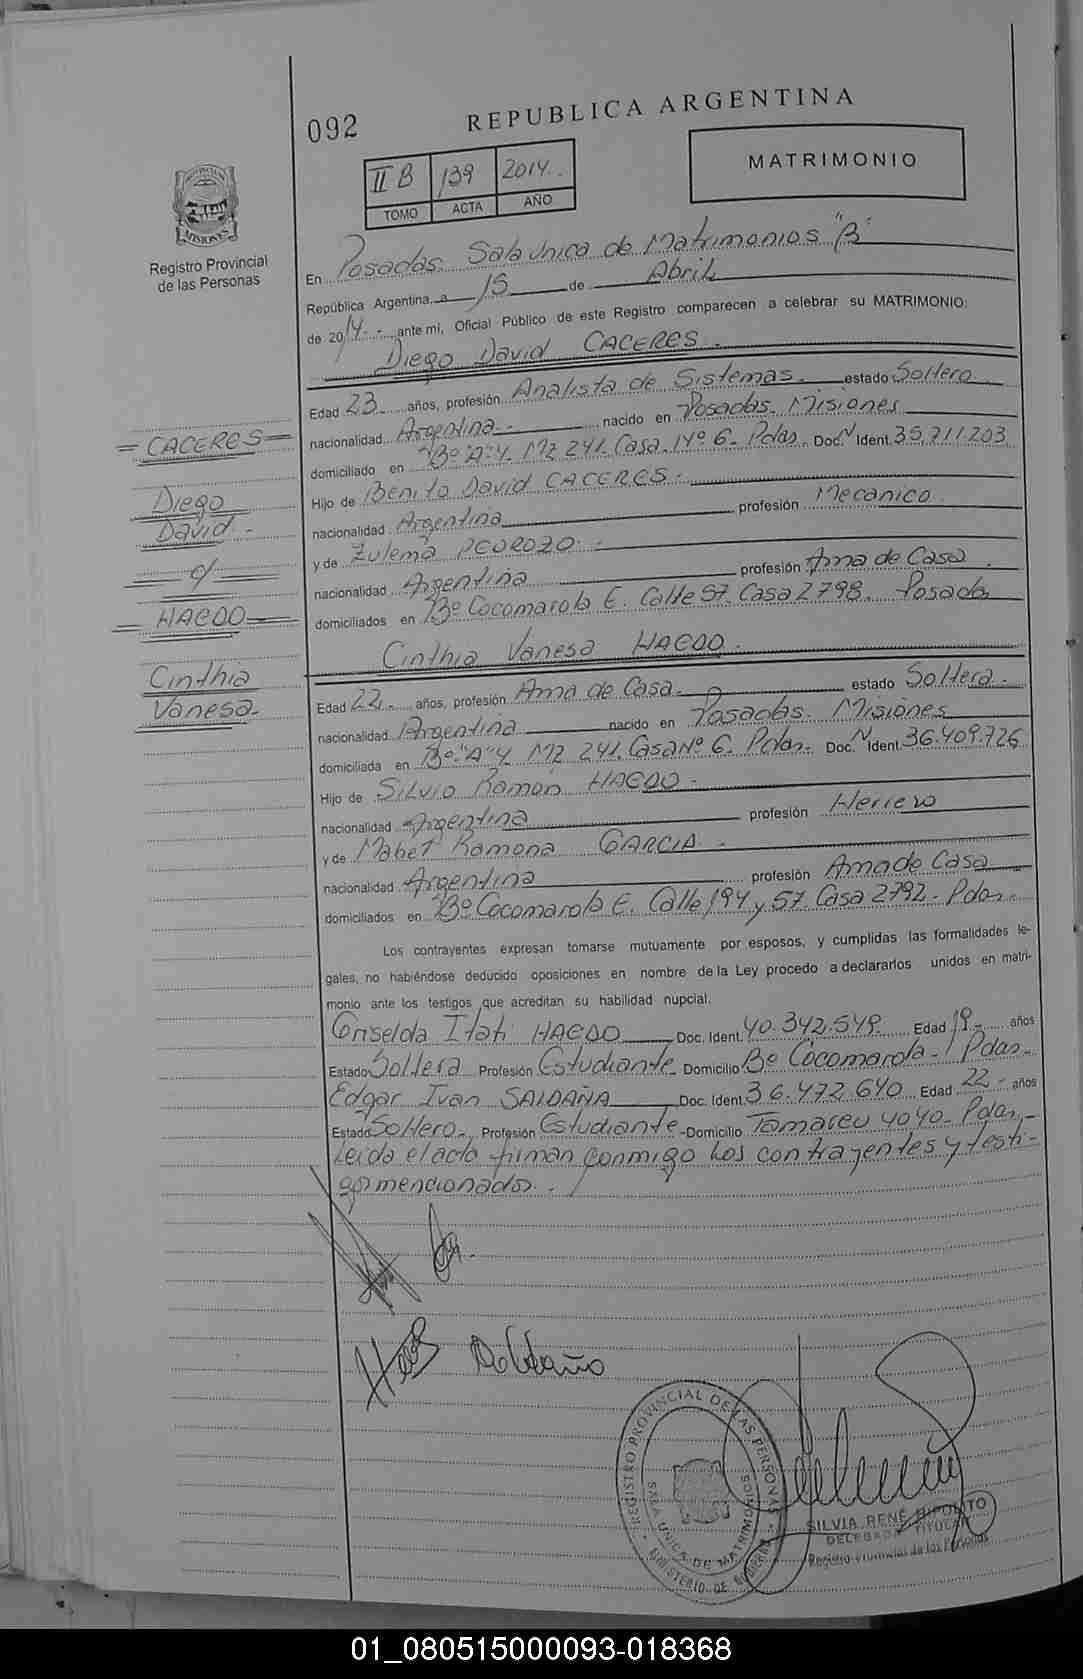 092
REPUBLICA ARGENTINA
MATRIMONIO
II B 139 2014
TOMO ACTA AÑO
MISIONES
Registro Provincial
de las Personas
En Posadas Sala Unica de Matrimonios "B"
República Argentina, a 15 de Abril
de 2014 ante mi, Oficial Público de este Registro comparecen a celebrar su MATRIMONIO:
Diego David CACERES
Edad 23 años, profesión Analista de Sistemas estado Soltero
nacionalidad Argentina nacido en Posadas Misiones
domiciliado en Bº "A-4 Mz 241 Casa Nº 6 Pdas. Doc. N Ident. 35.711.203
Hijo de Benito David CACERES
nacionalidad Argentina profesión Mecanico
y de Zulema PEDROZO
nacionalidad Argentina profesión Ama de Casa
domiciliados en Bº Cocomarola E. Calle 57 Casa 2798 Posadas
Cinthia Vanesa HAEDO
Edad 22 años, profesión Ama de Casa estado Soltera
nacionalidad Argentina nacido en Posadas Misiones
domiciliada en Bº "A-4 Mz 241 Casa Nº 6 Pdas. Doc. N Ident. 36.409.726
Hijo de Silvio Ramón HAEDO
nacionalidad Argentina profesión Herrero
y de Mabel Ramona GARCIA
nacionalidad Argentina profesión Ama de Casa
domiciliados en Bº Cocomarola E. Calle 194 y 57 Casa 2792 - Pdas.
Los contrayentes expresan tomarse mutuamente por esposos, y cumplidas las formalidades le-
gales, no habiéndose deducido oposiciones en nombre de la Ley procedo a declararlos unidos en matri-
monio ante los testigos que acreditan su habilidad nupcial.
Griselda Itati HAEDO Doc. Ident. 40.342.549 Edad 19 años
Estado Soltera Profesión Estudiante Domicilio Bº Cocomarola - Pdas.
Edgar Ivan SALDAÑA Doc. Ident. 36.472.640 Edad 22 años
Estado Soltero Profesión Estudiante Domicilio Tamareu 4040 - Pdas,-
Leida el acta firman conmigo los contrayentes y testi-
gos mencionados.
= CACERES =
Diego
David -
c/
= HAEDO =
Cinthia
Vanesa -
REGISTRO PROVINCIAL DE LAS PERSONAS
SALA UNICA DE MATRIMONIOS
MINISTERIO DE GOBIERNO
SILVIA RENÉ HIPOLITO
DELEGADA TITULAR
Registro Provincial de las Personas
01_080515000093-018368